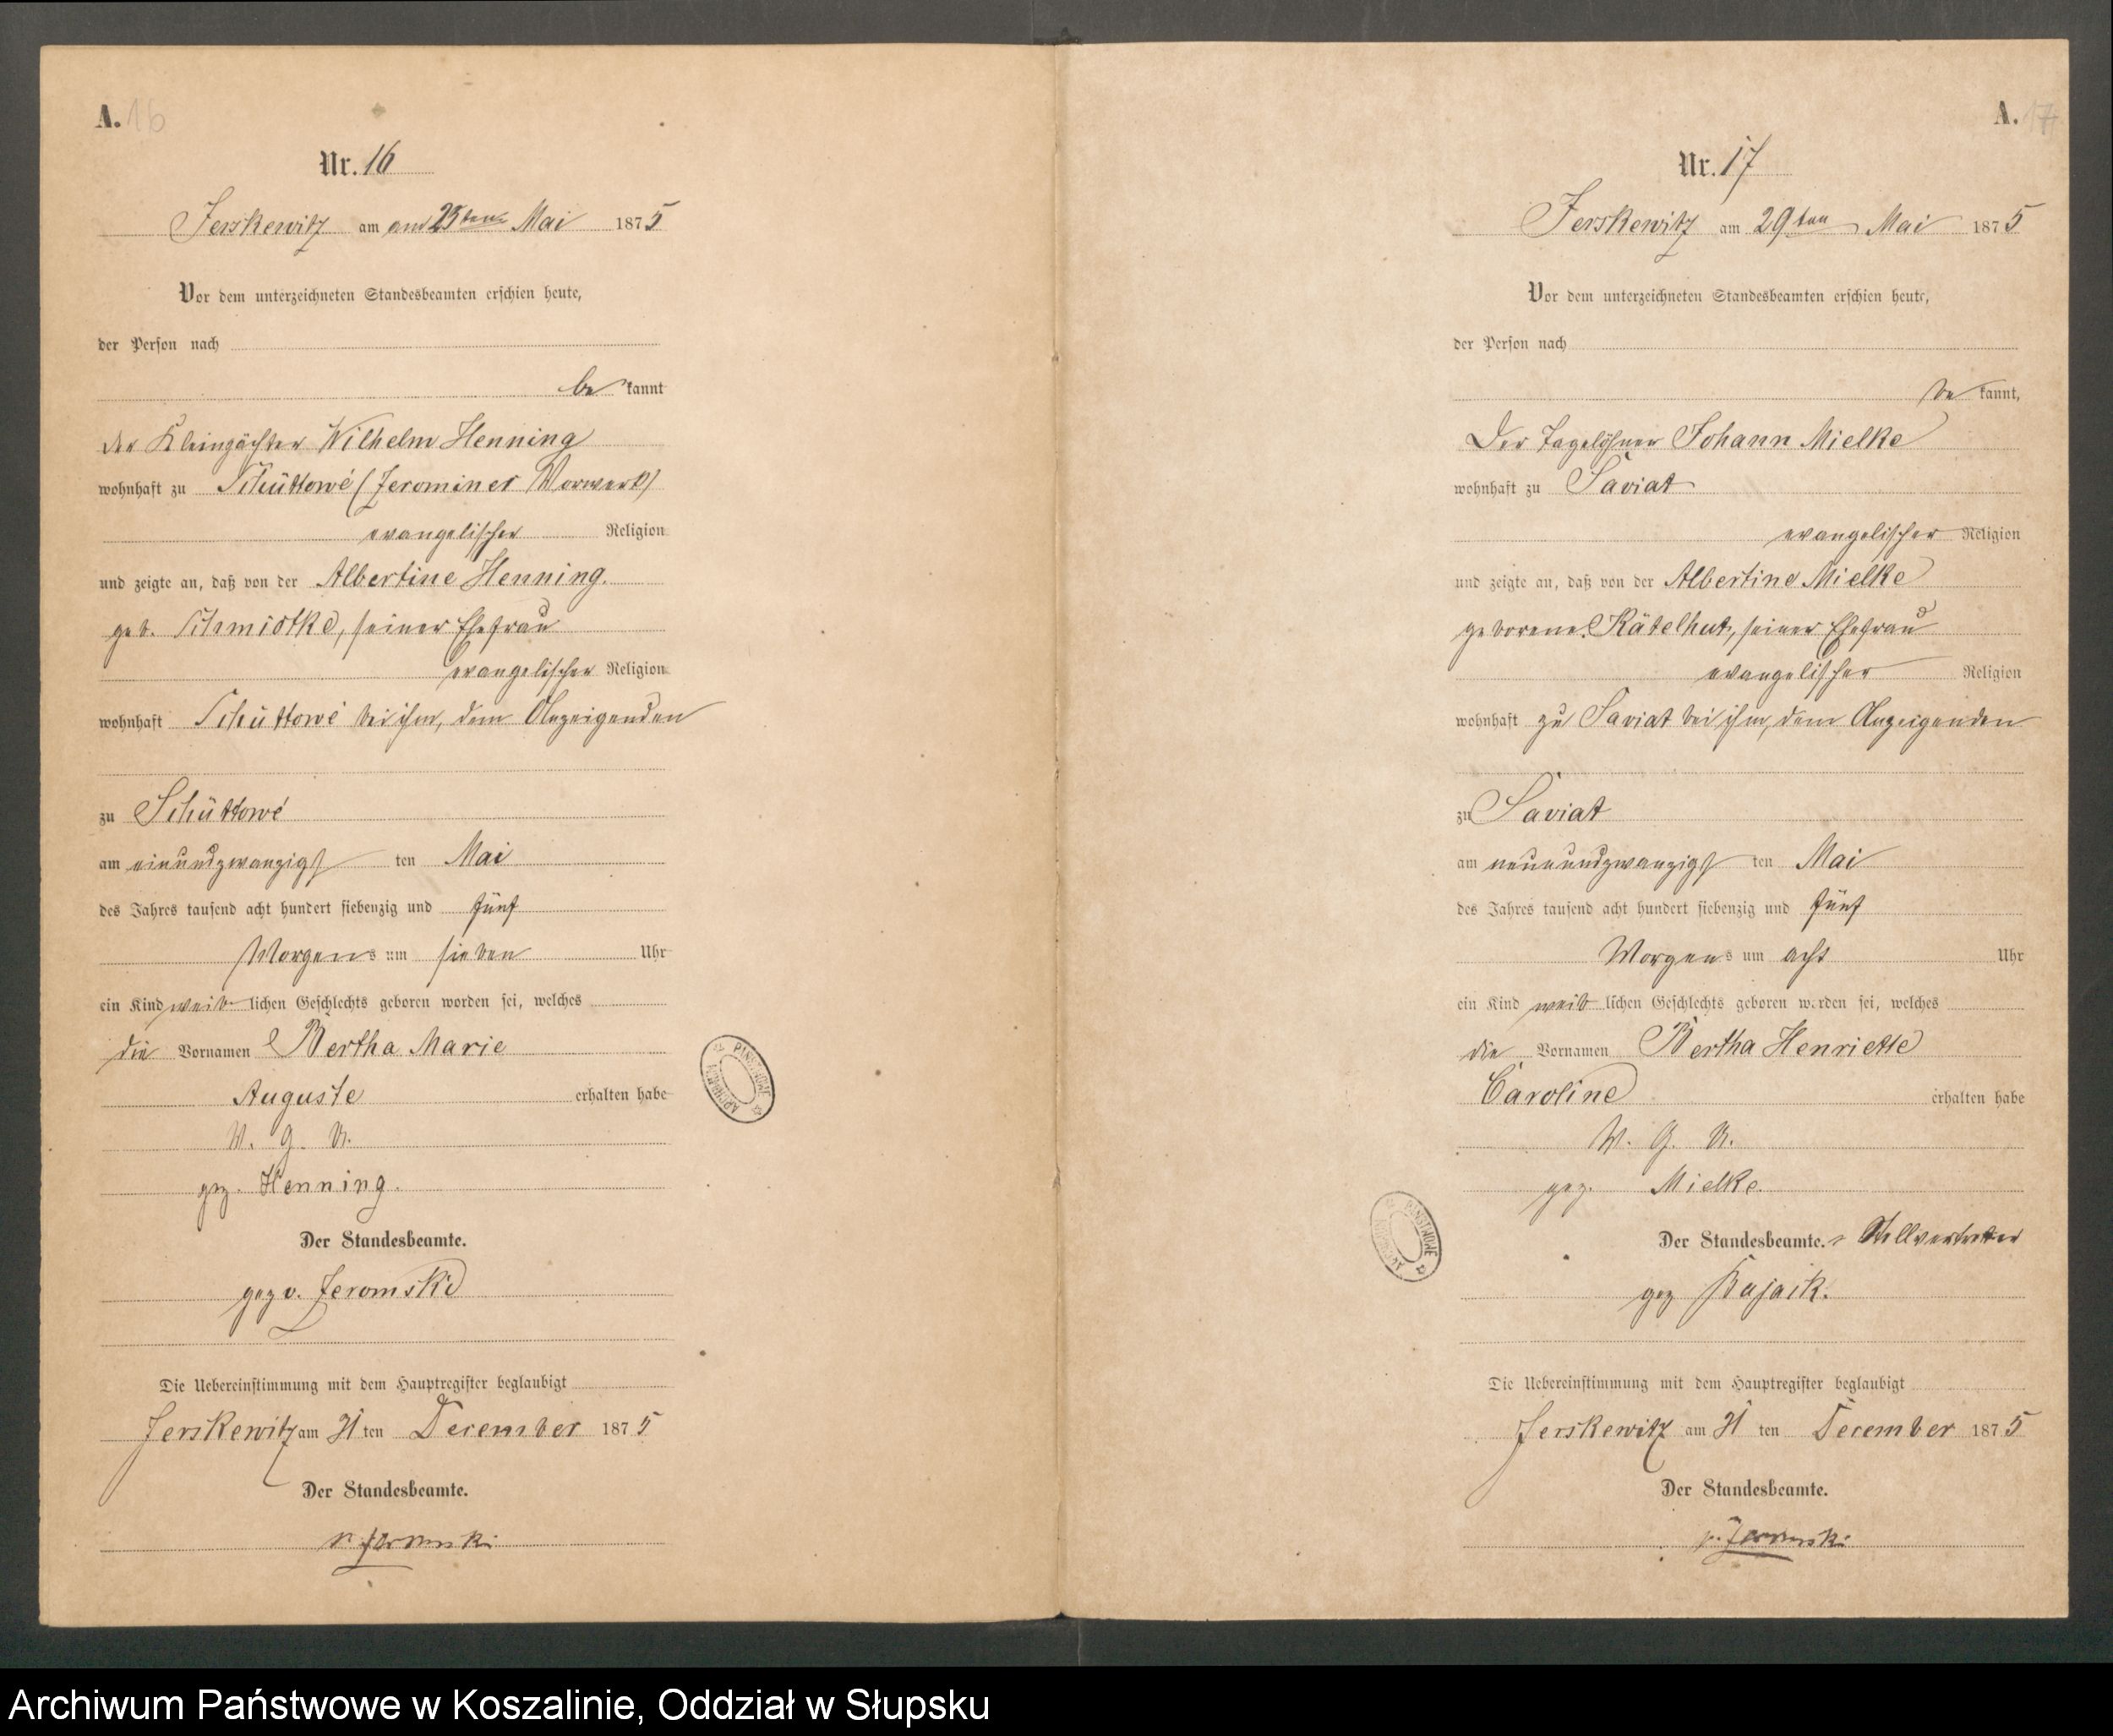 A. 16
Nr. 16
Jerskewitz am am 25ten Mai 1875
Vor dem unterzeichneten Standesbeamten erschien heute,
der Person nach
be kannt
der Kleinpächter Wilhelm Henning
wohnhaft zu Schüttowé (Jerominer Vorwerk)
evangelischer Religion
und zeigte an, daß von der Albertine Henning.
geb. Schmidtke, seiner Ehefrau
evangelischer Religion
wohnhaft Schüttowé bei ihm, dem Anzeigenden
zu Schüttowé
am einundzwanzigst ten Mai
des Jahres tausend acht hundert siebenzig und fünf
Morgens um sieben Uhr
ein Kind weib lichen Geschlechts geboren worden sei, welches
die Vornamen Bertha Marie
Auguste erhalten habe
V. G. U.
gez. Henning.
Der Standesbeamte.
gez v. Jeromski
Die Uebereinstimmung mit dem Hauptregister beglaubigt
Jerskewitz am 31 ten December 1875
Der Standesbeamte.
v. Jeromski
A. 17
Nr. 17
Jerskewitz am 29ten Mai 1875
Vor dem unterzeichneten Standesbeamten erschien heute,
der Person nach
be kannt,
Der Tagelöhner Johann Mielke
wohnhaft zu Saviat
evangelischer Religion
und zeigte an, daß von der Albertine Mielke
geborene Rätelhut, seiner Ehefrau
evangelischer Religion
wohnhaft zu Saviat bei ihm, dem Anzeigenden
zu Saviat
am neunundzwanzigst ten Mai
des Jahres tausend acht hundert siebenzig und fünf
Morgens um acht Uhr
ein Kind weib lichen Geschlechts geboren worden sei, welches
die Vornamen Bertha Henriette
Caroline erhalten habe
V. G. U.
gez. Mielke.
Der Standesbeamte. Stellvertreter
gez Bajaik.
Die Uebereinstimmung mit dem Hauptregister beglaubigt
Jerskewitz am 31 ten December 1875
Der Standesbeamte.
v. Jeromski
Archiwum Państwowe w Koszalinie, Oddział w Słupsku